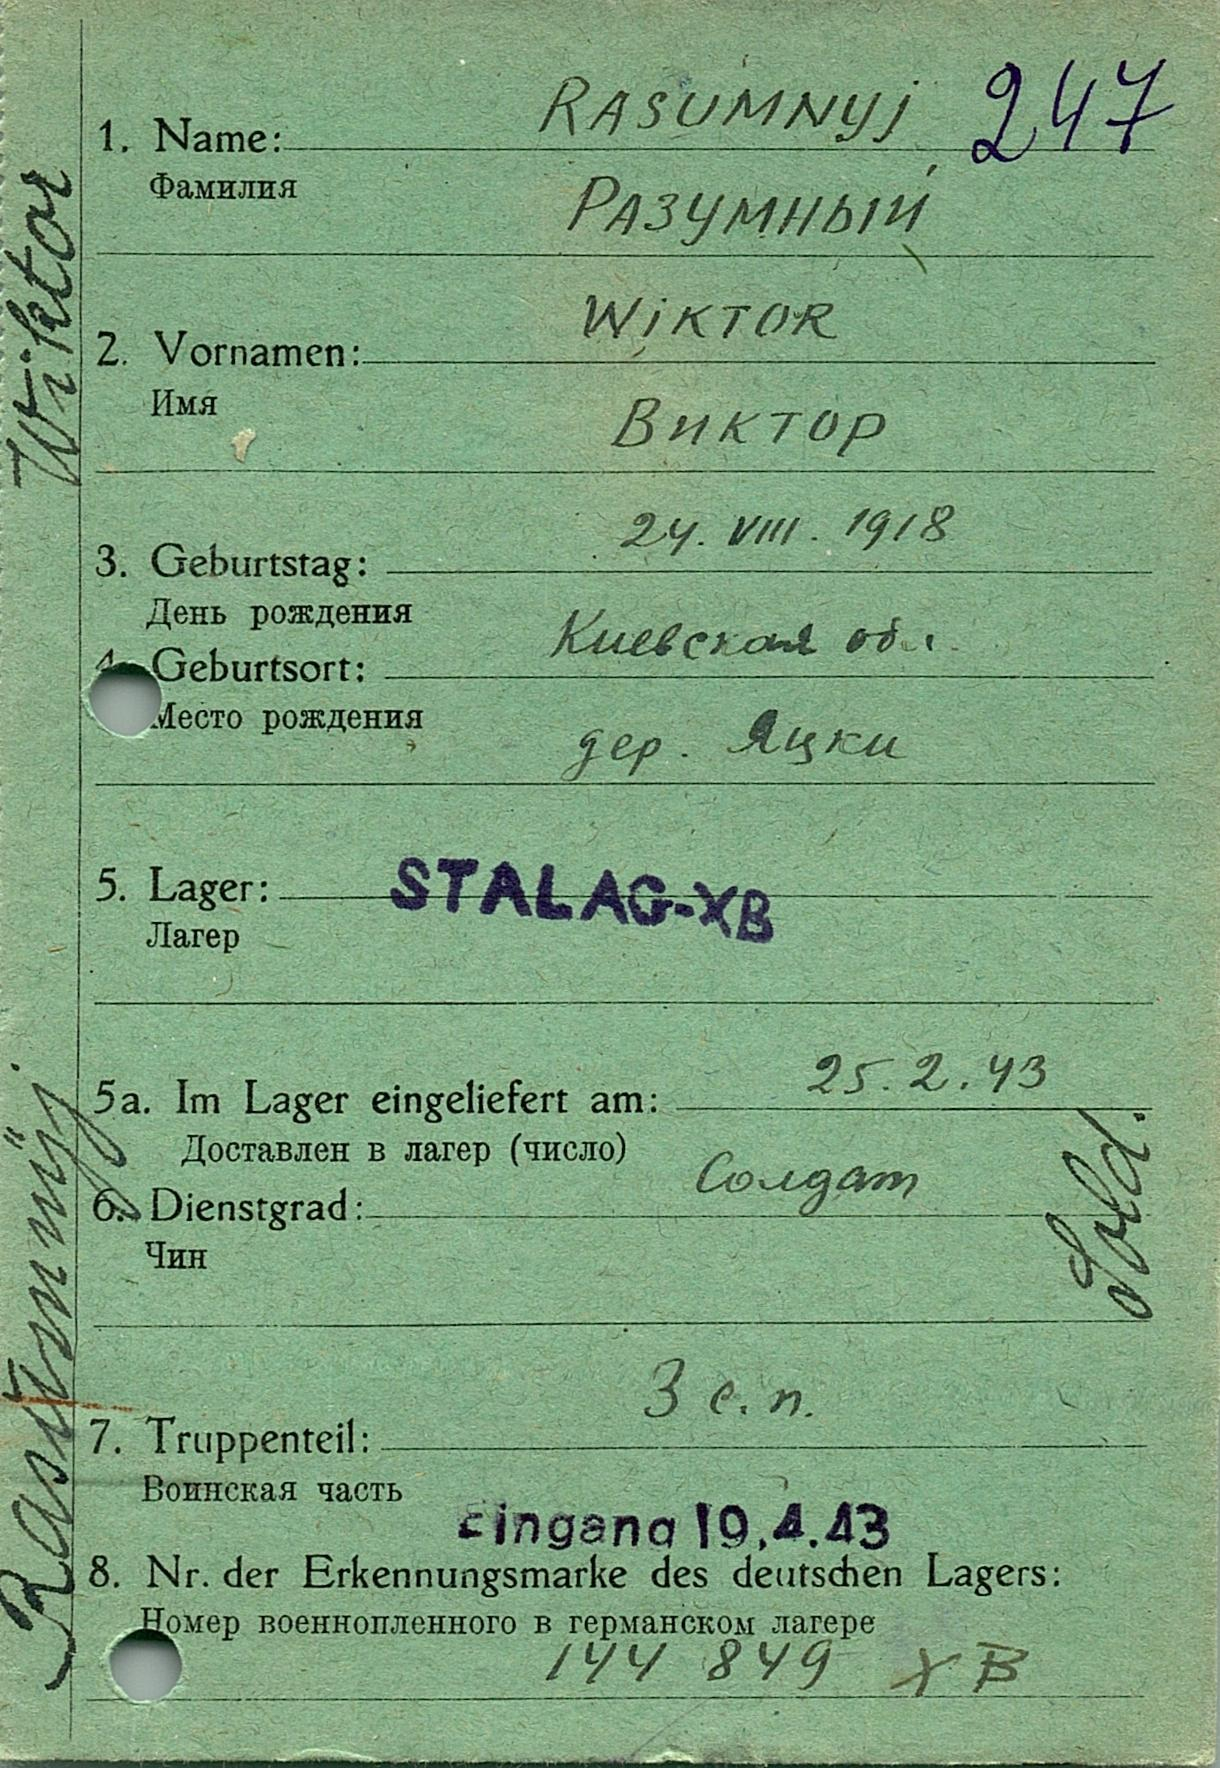 RASUMNYJ 247
1. Name:
Фамилия
РАЗУМНЫЙ
WiKTOR
2. Vornamen:
Имя
ВИКТОР
24. VIII. 1918
3. Geburtstag:
День рождения
Киевская обл.
4. Geburtsort:
Место рождения
дер. Яцки
5. Lager: STALAG-XB
Лагер
25.2.43
5a. Im Lager eingeliefert am:
Доставлен в лагер (число)
Солдат
6. Dienstgrad:
Чин
Sold.
3 с.п.
7. Truppenteil:
Воинская часть
Eingang 19.4.43
8. Nr. der Erkennungsmarke des deutschen Lagers:
Номер военнопленного в германском лагере
144 849 XB
Rasŭmnÿj
Wiktor